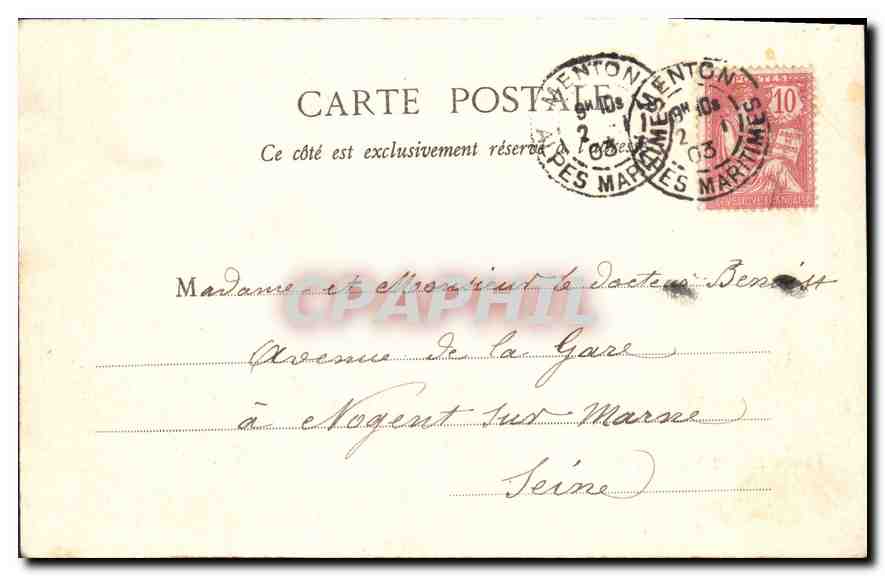 CARTE POSTALE
Ce côté est exclusivement réservé à l'adresse
MENTON
9H 10s
2 1
03
ALPES MARITIMES
MENTON
9H 10s
2 1
03
ALPES MARITIMES
POSTES
10
Madame et Monsieur le docteur Benoist
CPAPHIL
Avenue de la Gare
à Nogent sur Marne
Seine